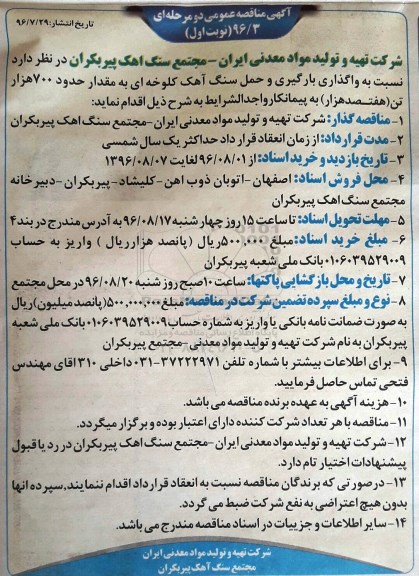 آگهی مناقصه عمومی دو مرحله ای
۹۶/۳ (نوبت اول)
تاریخ انتشار: ۹۶/۷/۲۹
شرکت تهیه و تولید مواد معدنی ایران - مجتمع سنگ آهک پیربکران در نظر دارد
نسبت به واگذاری بارگیری و حمل سنگ آهک کلوخه ای به مقدار حدود ۷۰۰هزار
تن(هفتـصدهزار) به پیمانکار واجدالشرایط به شرح ذیل اقدام نماید:
۱- مناقصه گذار: شرکت تهیه و تولید مواد معدنی ایران-مجتمع سنگ اهک پیربکران
۲-مدت قرارداد: از زمان انعقاد قرار داد حداکثر یک سال شمسی
۳- تاریخ بازدید و خرید اسناد: از ۹۶/۰۸/۰۱لغایت ۱۳۹۶/۰۸/۰۷
۴- محل فروش اسناد: اصفهان -اتوبان ذوب اهن -کلیشاد- پیربکران-دبیرخانه
مجتمع سنگ اهک پیربکران
۵-مهلت تحویل اسناد: تا ساعت ۱۵ روز چهارشنبه ۹۶/۰۸/۱۷به آدرس مندرج در بند۴
۶- مبلغ خرید اسناد: مبلغ ۵۰۰،۰۰۰ ریال (پانصد هزارریال ) واریز به حساب
۰۱۰۶۰۳۹۵۲۹۰۰۹ بانک ملی شعبه پیربکران
۷-تاریخ و محل بازگشایی پاکتها: ساعت ۱۰صبح روز شنبه ۹۶/۰۸/۲۰ در محل مجتمع
۸- نوع و مبلغ سپرده تضمین شرکت در مناقصه: مبلغ ۵۰۰،۰۰۰،۰۰۰(پانصد میلیون)ریال
به صورت ضمانت نامه بانکی یا واریز به شماره حساب ۰۱۰۶۰۳۹۵۲۹۰۰۹ بانک ملی شعبه
پیربکران به نام شرکت تهیه و تولید مواد معدنی -مجتمع پیربکران
۹- برای اطلاعات بیشتر با شماره تلفن ۳۷۲۲۲۹۷۱-۰۳۱داخلی ۳۱۰ اقای مهندس
فتحی تماس حاصل فرمایید.
۱۰- هزینه آگهی به عهده برنده مناقصه می باشد.
۱۱- مناقصه با هر تعداد شرکت کننده دارای اعتبار بوده و برگزار میگردد.
۱۲- شرکت تهیه و تولید مواد معدنی ایران-مجتمع سنگ اهک پیربکران در رد یا قبول
پیشنهادات اختیار تام دارد.
۱۳- درصورتی که برندگان مناقصه نسبت به انعقاد قرارداد اقدام ننمایند،سپرده انها
بدون هیچ اعتراضی به نفع شرکت ضبط می گردد.
۱۴-سایر اطلاعات و جزییات در اسناد مناقصه مندرج می باشد.
شرکت تهیه و تولید مواد معدنی ایران
مجتمع سنگ آهک پیربکران